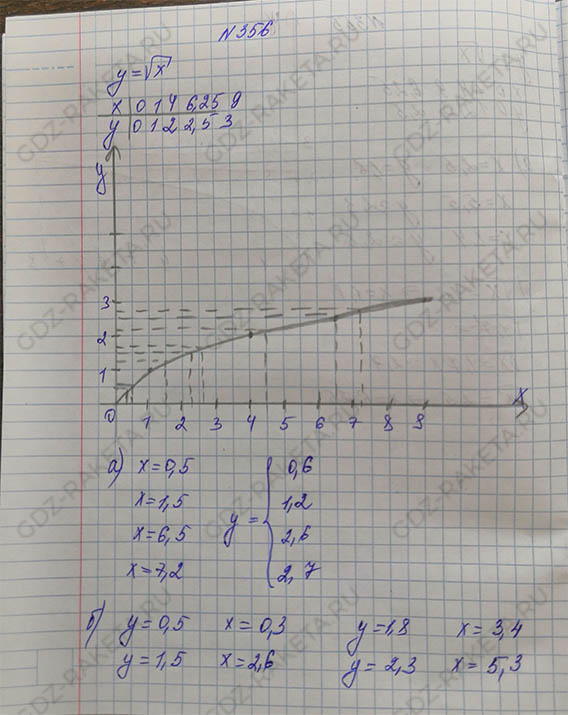 N356
y=√x
x 0 1 4 6,25 9
y 0 1 2 2,5 3
y
3
2
1
0 1 2 3 4 5 6 7 8 9 x
а) x=0,5
x=1,5
x=6,5
x=7,2
y = { 0,6
1,2
2,6
2,7
б) y=0,5 x=0,3 y=1,8 x=3,4
y=1,5 x=2,6 y=2,3 x=5,3
GDZ-RAKETA.RU